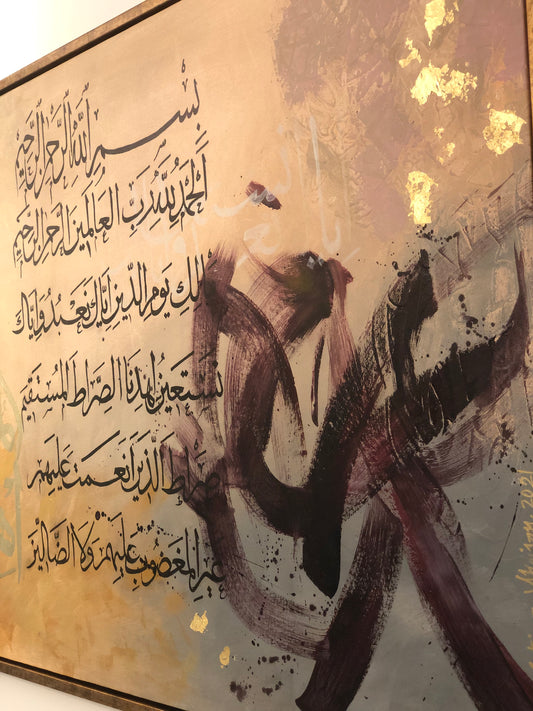 بِسْمِ اللَّهِ الرَّحْمَنِ الرَّحِيمِ
الْحَمْدُ لِلَّهِ رَبِّ الْعَالَمِينَ الرَّحْمَنِ الرَّحِيمِ
مَالِكِ يَوْمِ الدِّينِ إِيَّاكَ نَعْبُدُ وَإِيَّاكَ
نَسْتَعِينُ اهْدِنَا الصِّرَاطَ الْمُسْتَقِيمَ
صِرَاطَ الَّذِينَ أَنْعَمْتَ عَلَيْهِمْ
غَيْرِ الْمَغْضُوبِ عَلَيْهِمْ وَلَا الضَّالِّينَ
2021